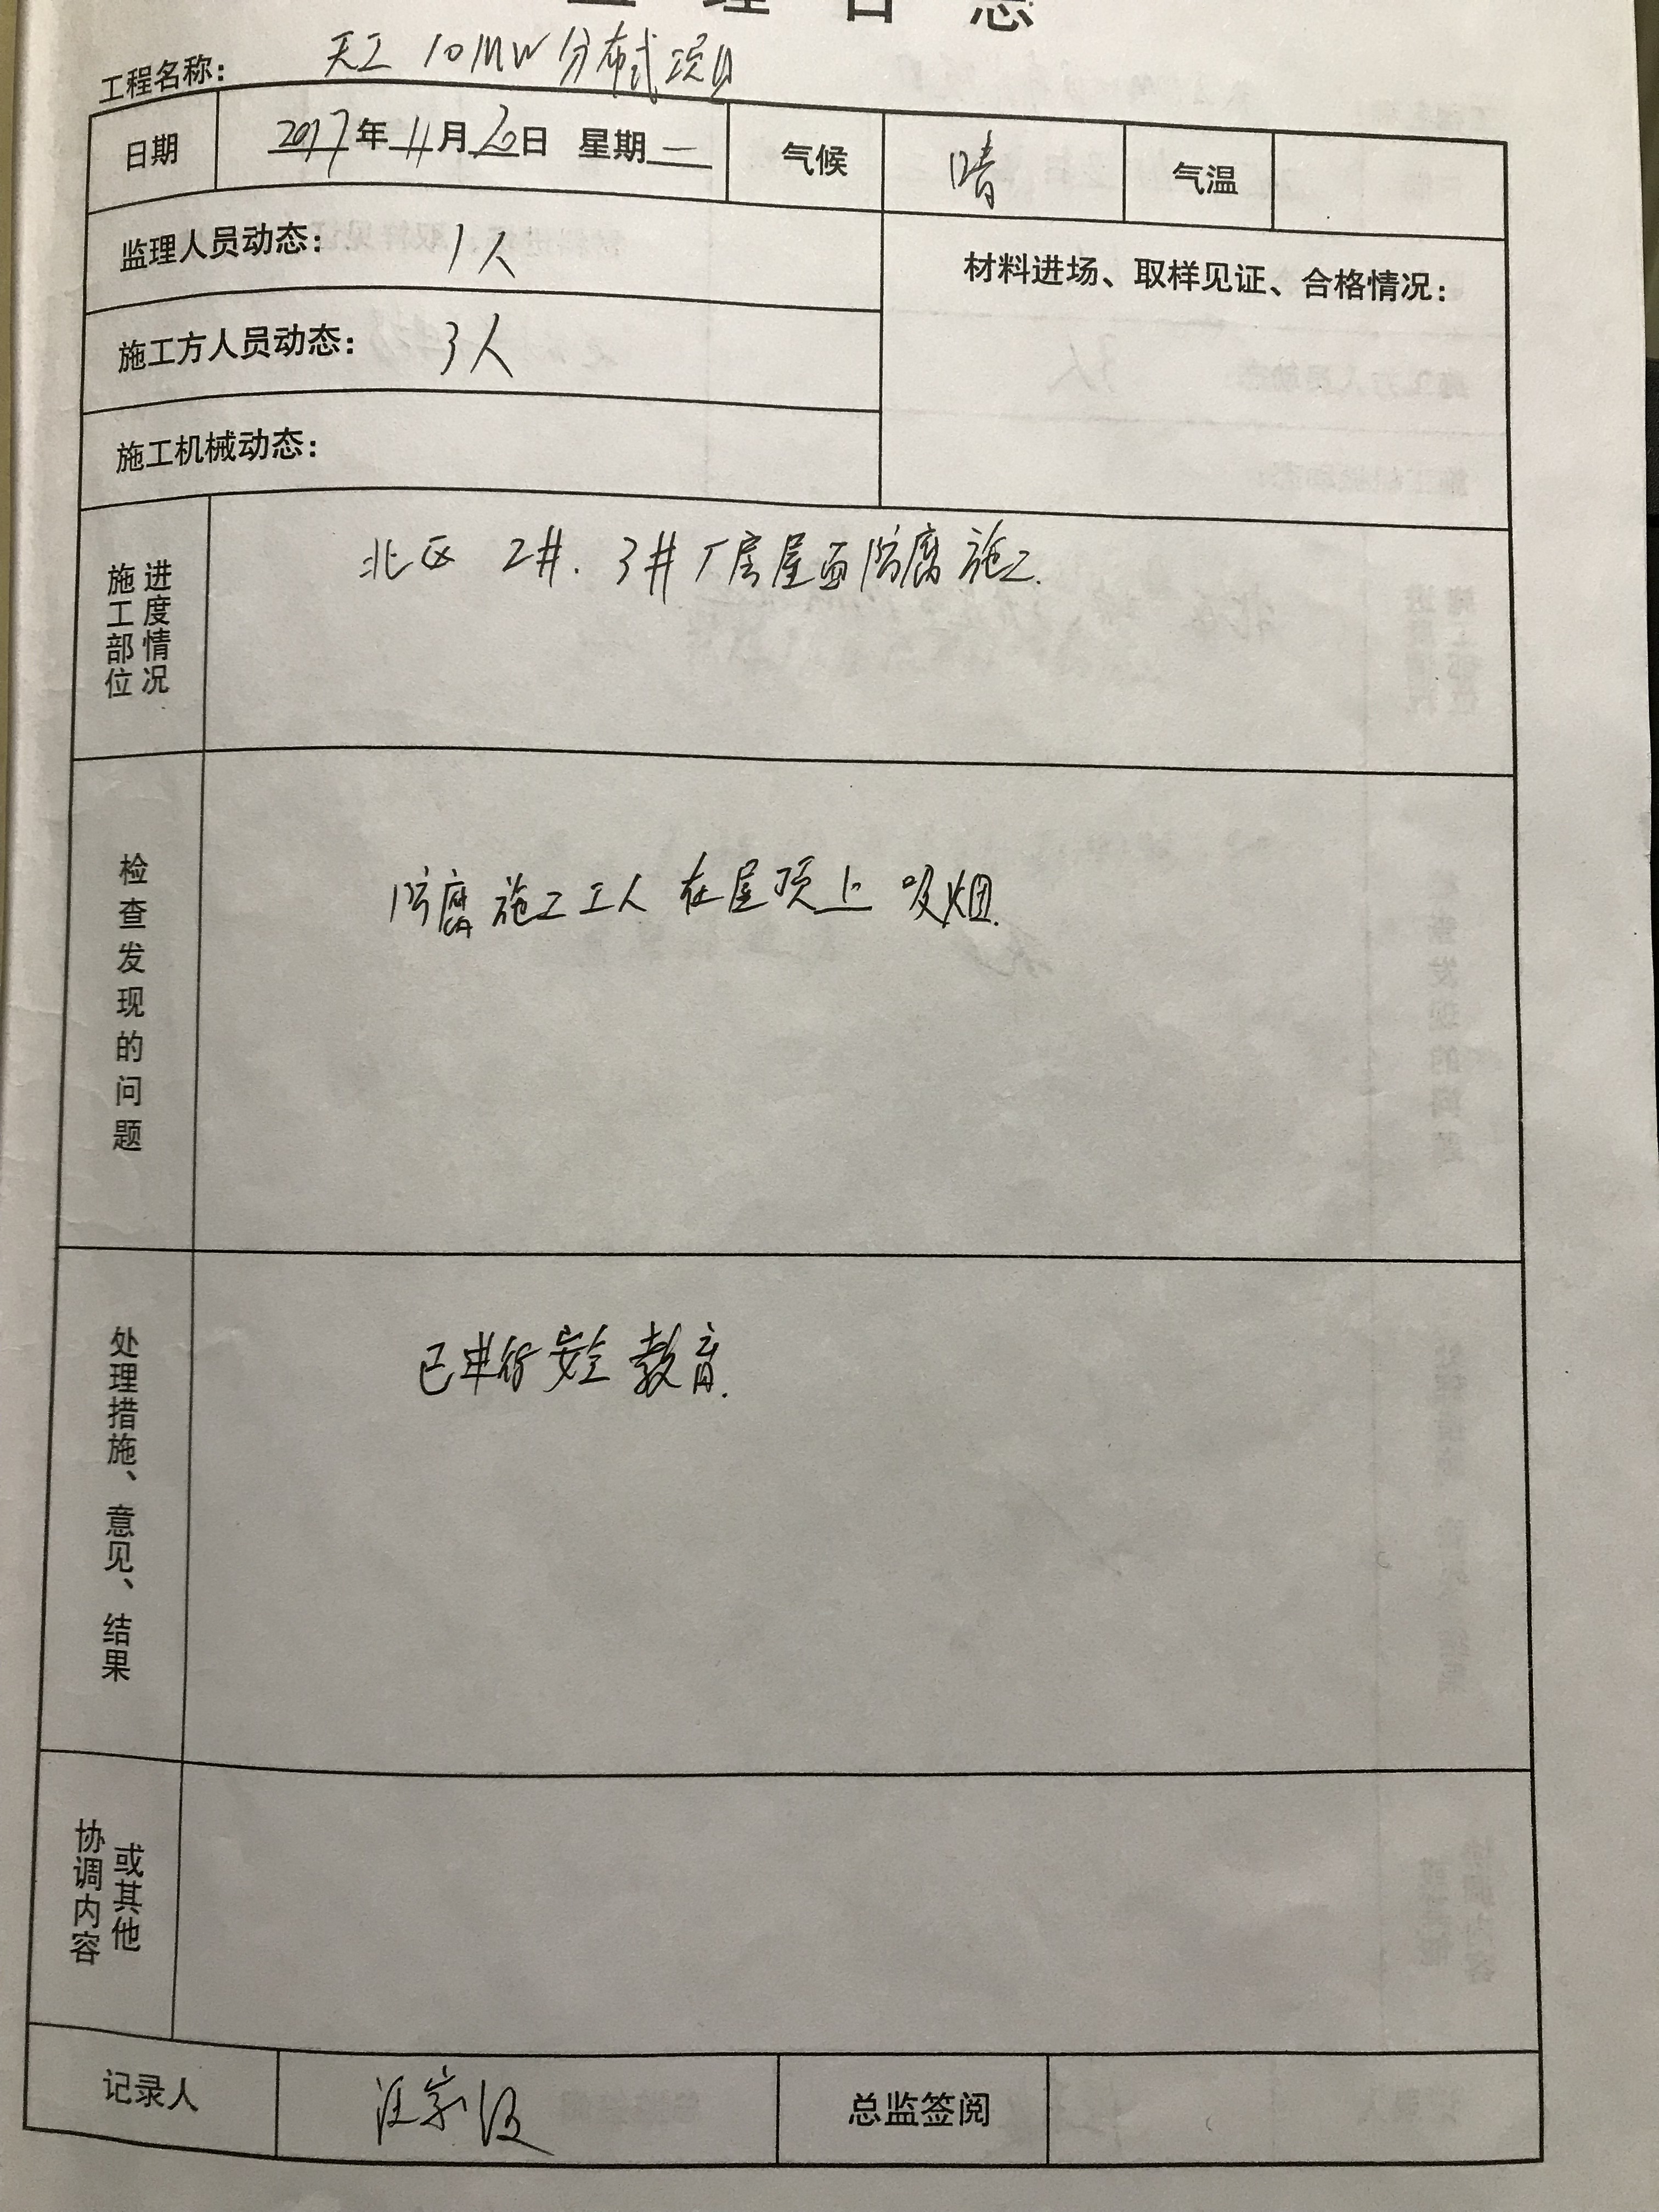 监理日志
工程名称： 天工 10MW分布式项目
日期 2017年11月20日 星期一 气候 晴 气温
监理人员动态： 1人 材料进场、取样见证、合格情况：
施工方人员动态： 3人
施工机械动态：
施工部位进度情况 北区 2#. 3#厂房屋面防腐施工.
检查发现的问题 防腐施工工人在屋顶上吸烟.
处理措施、意见、结果 已进行安全教育.
协调内容或其他
记录人 汪宗 总监签阅